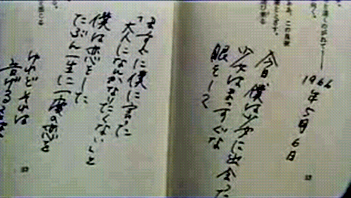 1966年5月6日
今日、僕は少女に出会った
少女はまっすぐな
眼をして
まっすぐに僕に言った
大人になんかなりたくないと
僕は恋をした
たぶん一生に一度の恋を
けれどそれは